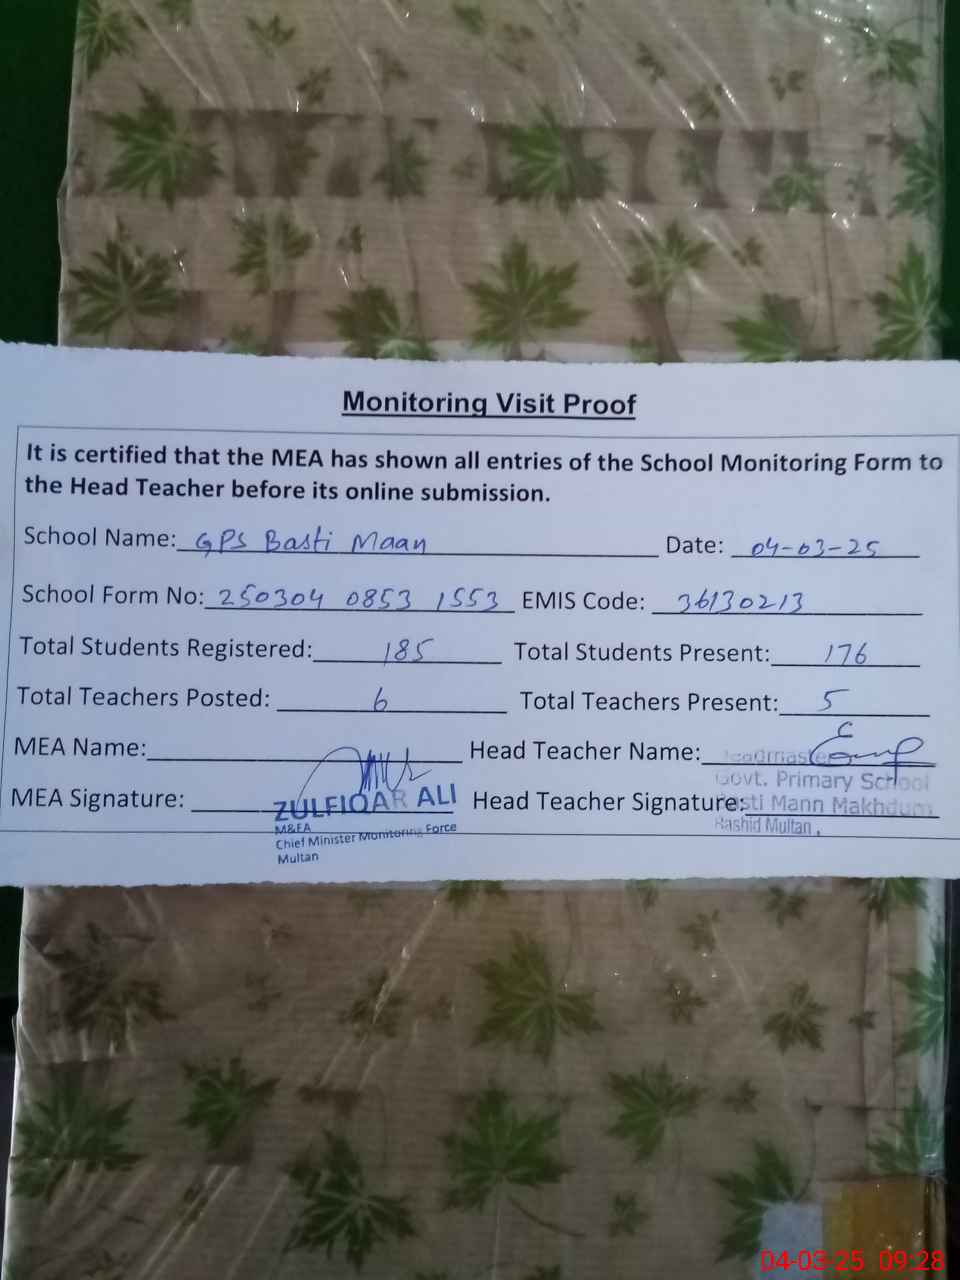 Monitoring Visit Proof
It is certified that the MEA has shown all entries of the School Monitoring Form to
the Head Teacher before its online submission.
School Name: GPS Basti Maan Date: 04-03-25
School Form No: 250304 0853 1553 EMIS Code: 36130213
Total Students Registered: 185 Total Students Present: 176
Total Teachers Posted: 6 Total Teachers Present: 5
MEA Name: Head Teacher Name:
Headmaster
Govt. Primary School
MEA Signature: Head Teacher Signature:
Basti Mann Makhdum
Rashid Multan.
ZULFIQAR ALI
M&EA
Chief Minister Monitoring Force
Multan
04-03-25 09:28